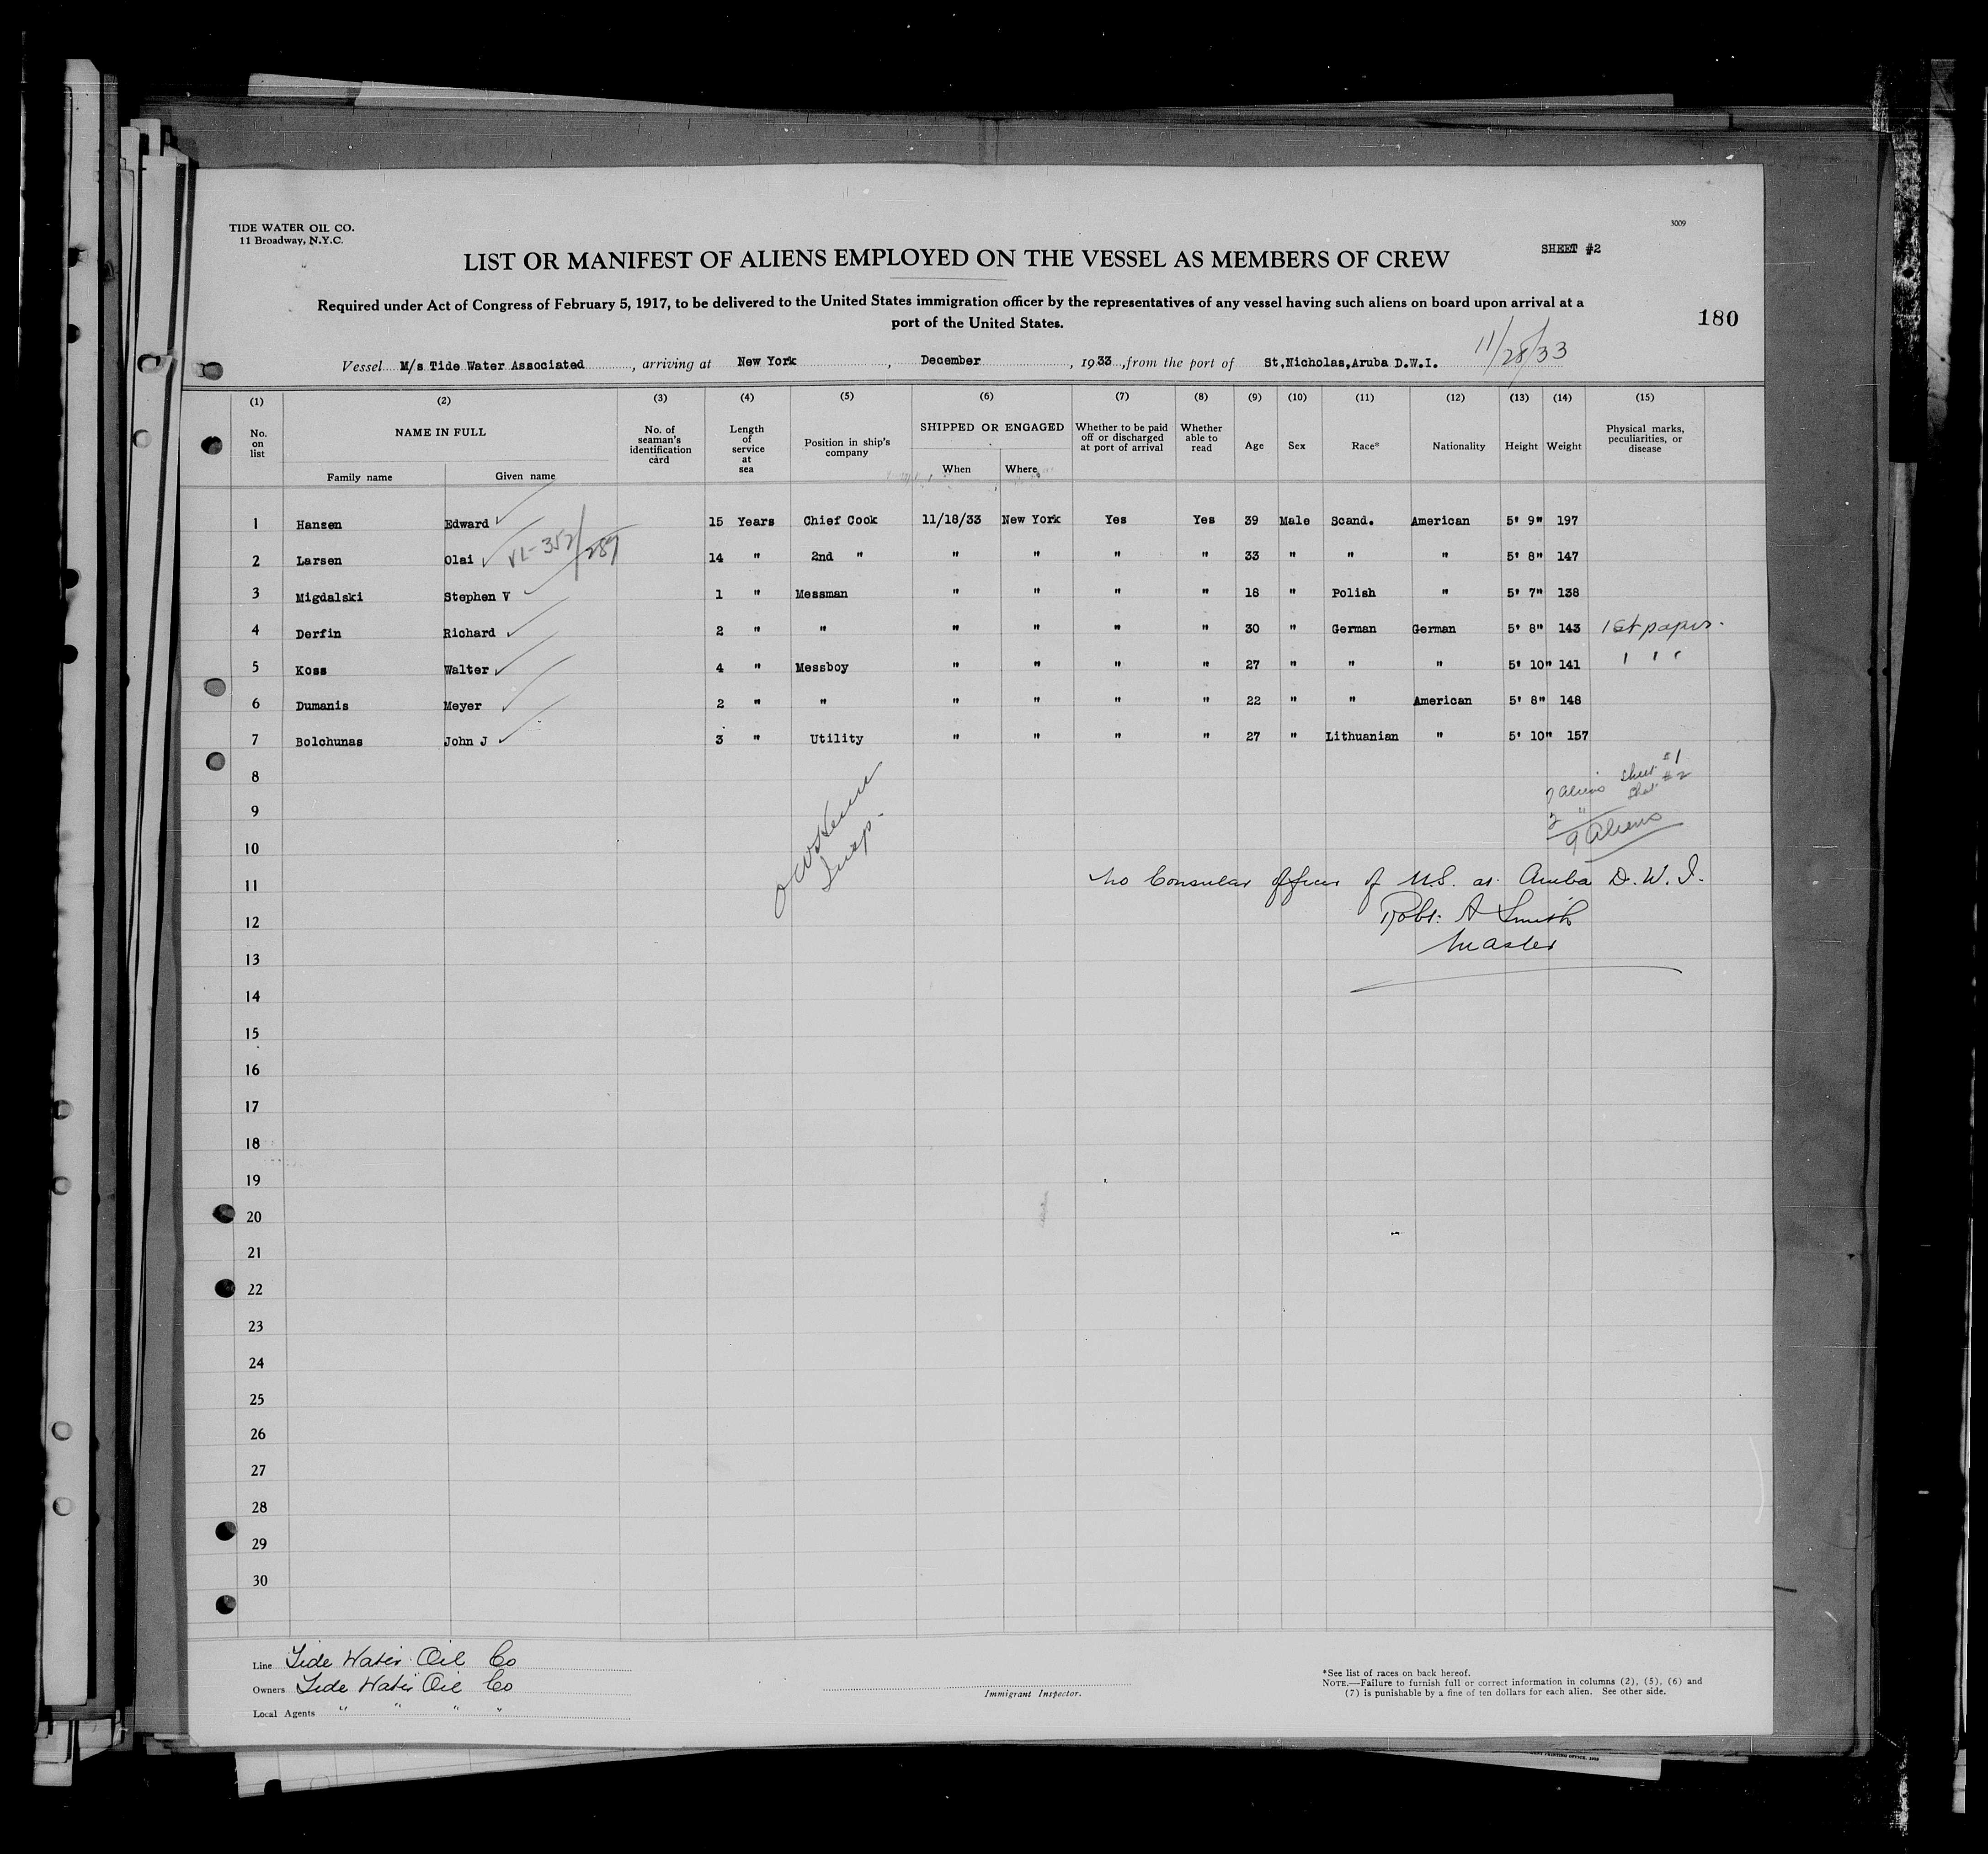 TIDE WATER OIL CO.
11 Broadway, N.Y.C.
3009
SHEET #2
LIST OR MANIFEST OF ALIENS EMPLOYED ON THE VESSEL AS MEMBERS OF CREW
Required under Act of Congress of February 5, 1917, to be delivered to the United States immigration officer by the representatives of any vessel having such aliens on board upon arrival at a
port of the United States.
180
Vessel M/s Tide Water Associated, arriving at New York, December, 1933, from the port of St,Nicholas,Aruba D.W.I. 11/28/33
(1) (2) (3) (4) (5) (6) (7) (8) (9) (10) (11) (12) (13) (14) (15)
No. on list NAME IN FULL Family name Given name No. of seaman's identification card Length of service at sea Position in ship's company SHIPPED OR ENGAGED When Where Whether to be paid off or discharged at port of arrival Whether able to read Age Sex Race* Nationality Height Weight Physical marks, peculiarities, or disease
1 Hansen Edward 15 Years Chief Cook 11/18/33 New York Yes Yes 39 Male Scand. American 5' 9" 197
2 Larsen Olai VL-352/287 14 " 2nd " " " " " 33 " " " 5' 8" 147
3 Migdalski Stephen V 1 " Messman " " " " 18 " Polish " 5' 7" 138
4 Derfin Richard 2 " " " " " " 30 " German German 5' 8" 143 1st papers.
5 Koss Walter 4 " Messboy " " " " 27 " " " 5' 10" 141 " "
6 Dumanis Meyer 2 " " " " " " 22 " " American 5' 8" 148
7 Bolchunas John J 3 " Utility " " " " 27 " Lithuanian " 5' 10" 157
8
Aliens Sheet #1
9
2 " Sheet #2
10
9 Aliens
Insp.
11 No Consular officer of U.S. at Aruba D.W.I.
12 Robt. A Smith
13 Master
14
15
16
17
18
19
20
21
22
23
24
25
26
27
28
29
30
Line Tide Water Oil Co
Owners Tide Water Oil Co
Local Agents " " " "
Immigrant Inspector.
*See list of races on back hereof.
NOTE.—Failure to furnish full or correct information in columns (2), (5), (6) and
(7) is punishable by a fine of ten dollars for each alien. See other side.